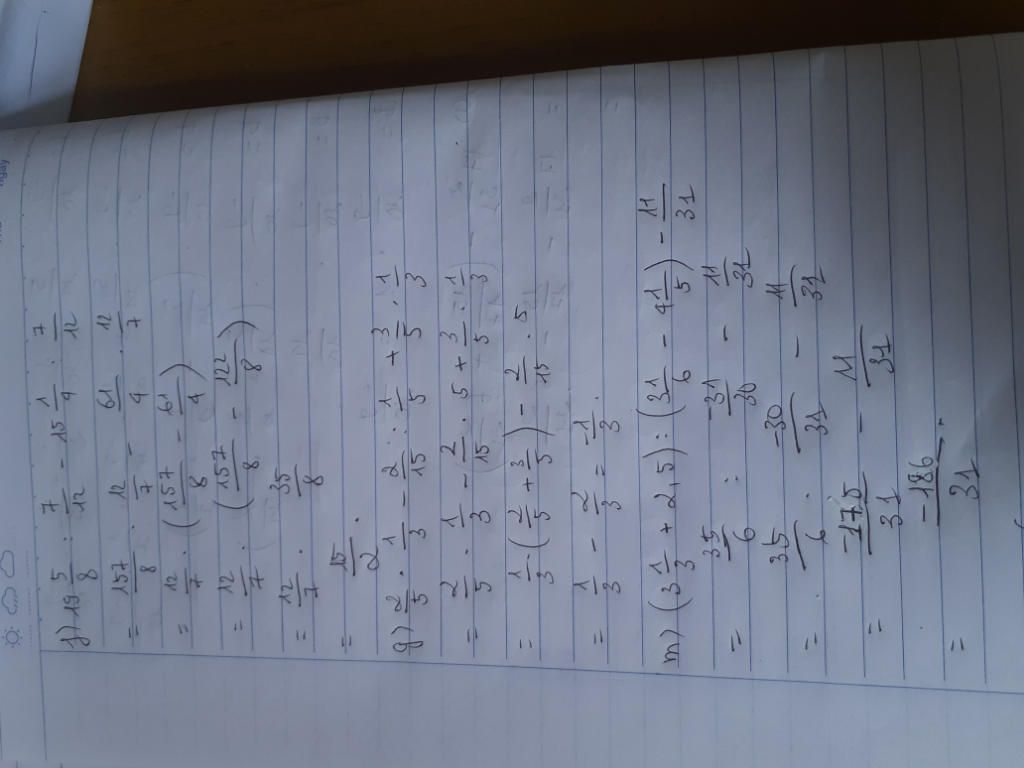 f) 19 5/8 : 7/12 - 15 1/4 : 7/12
= 157/8 . 12/7 - 61/4 . 12/7
= 12/7 . (157/8 - 61/4)
= 12/7 . (157/8 - 122/8)
= 12/7 . 35/8
= 15/2 .
g) 2/5 . 1/3 - 2/15 : 1/5 + 3/5 . 1/3
= 2/5 . 1/3 - 2/15 . 5 + 3/5 . 1/3
= 1/3 . (2/5 + 3/5) - 2/15 . 5
= 1/3 - 2/3 = -1/3 .
m) (3 1/3 + 2,5) : (3 1/6 - 4 1/5) - 11/31
= 35/6 : -31/30 - 11/31
= 35/6 . -30/31 - 11/31
= -175/31 - 11/31
= -186/31 .